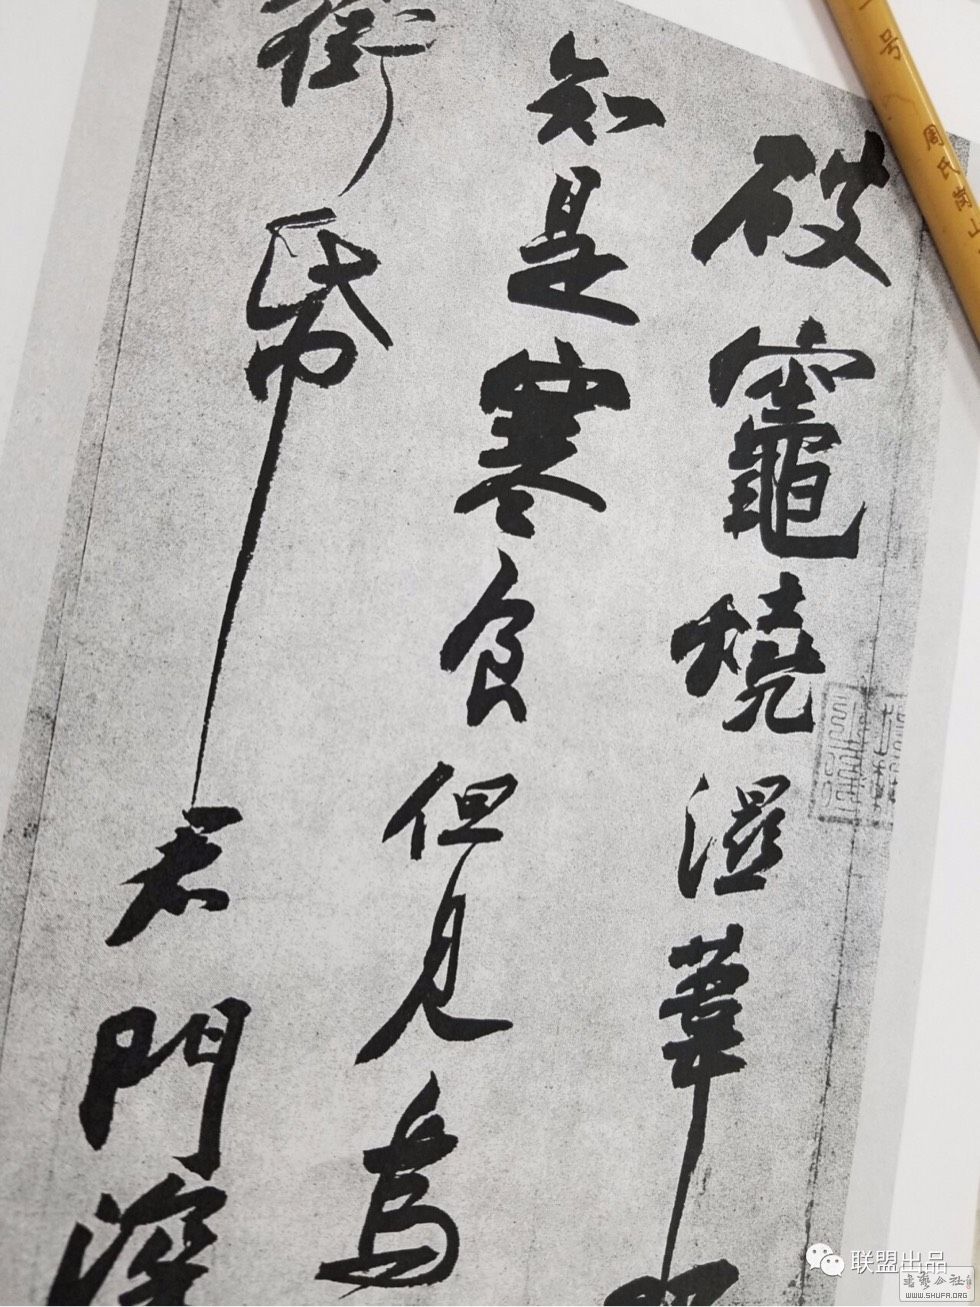 破竈燒濕葦
知是寒食但見烏
銜帋君門深
一号 周氏
联盟出品
書藝公社
WWW.SHUFA.ORG